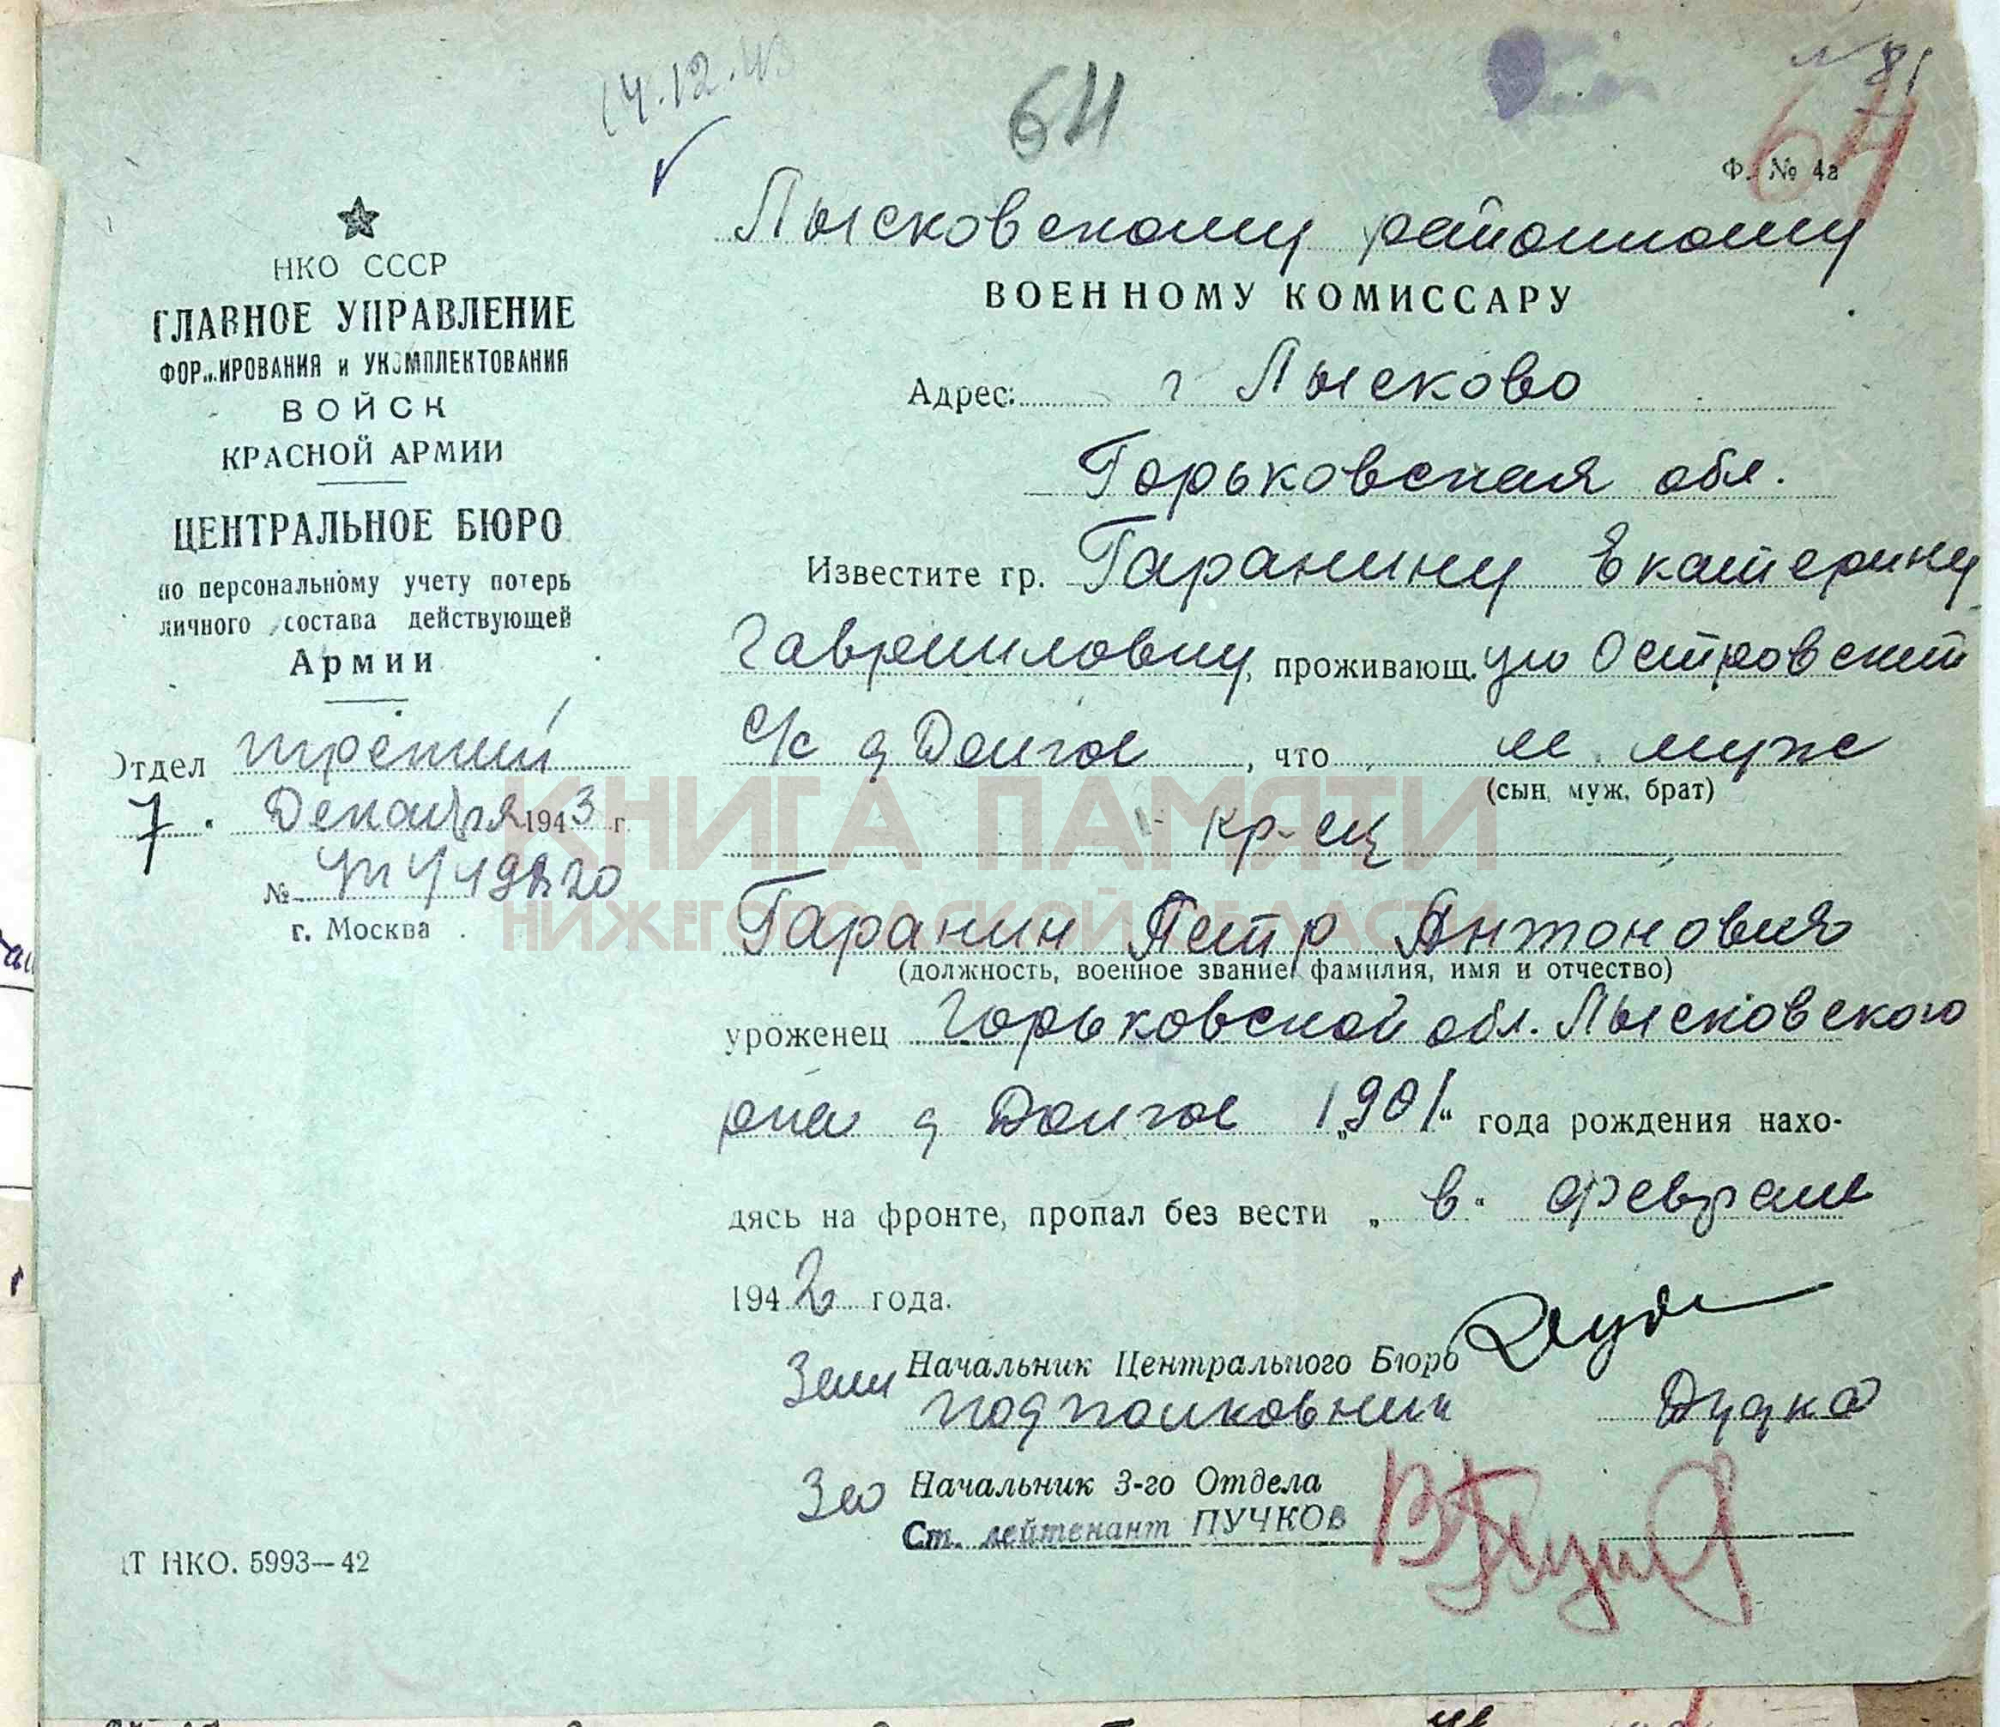 14.12.43
64
№ 81
64
Ф. № 4а
НКО СССР
ГЛАВНОЕ УПРАВЛЕНИЕ
ФОРМИРОВАНИЯ и УКОМПЛЕКТОВАНИЯ
ВОЙСК
КРАСНОЙ АРМИИ
ЦЕНТРАЛЬНОЕ БЮРО
по персональному учету потерь
личного состава действующей
Армии
Отдел третий
7 Декабря 1943 г.
№
г. Москва
Лысковскому районному
ВОЕННОМУ КОМИССАРУ
Адрес: г Лысково
Горьковская обл.
Известите гр. Гаранину Екатерину
Гавриловну, проживающ. ую Островский
с/с д Долгое, что ее муж
(сын, муж, брат)
кр-ец
Гаранин Петр Антонович
(должность, военное звание, фамилия, имя и отчество)
уроженец Горьковской обл. Лысковского
р-на д Долгое „1901“ года рождения нахо-
дясь на фронте, пропал без вести „в“ феврале
1942 года.
Зам Начальник Центрального Бюро
подполковник Дудко
Зао Начальник 3-го Отдела
Ст. лейтенант ПУЧКОВ
Т НКО. 5993—42
КНИГА ПАМЯТИ
НИЖЕГОРОДСКОЙ ОБЛАСТИ